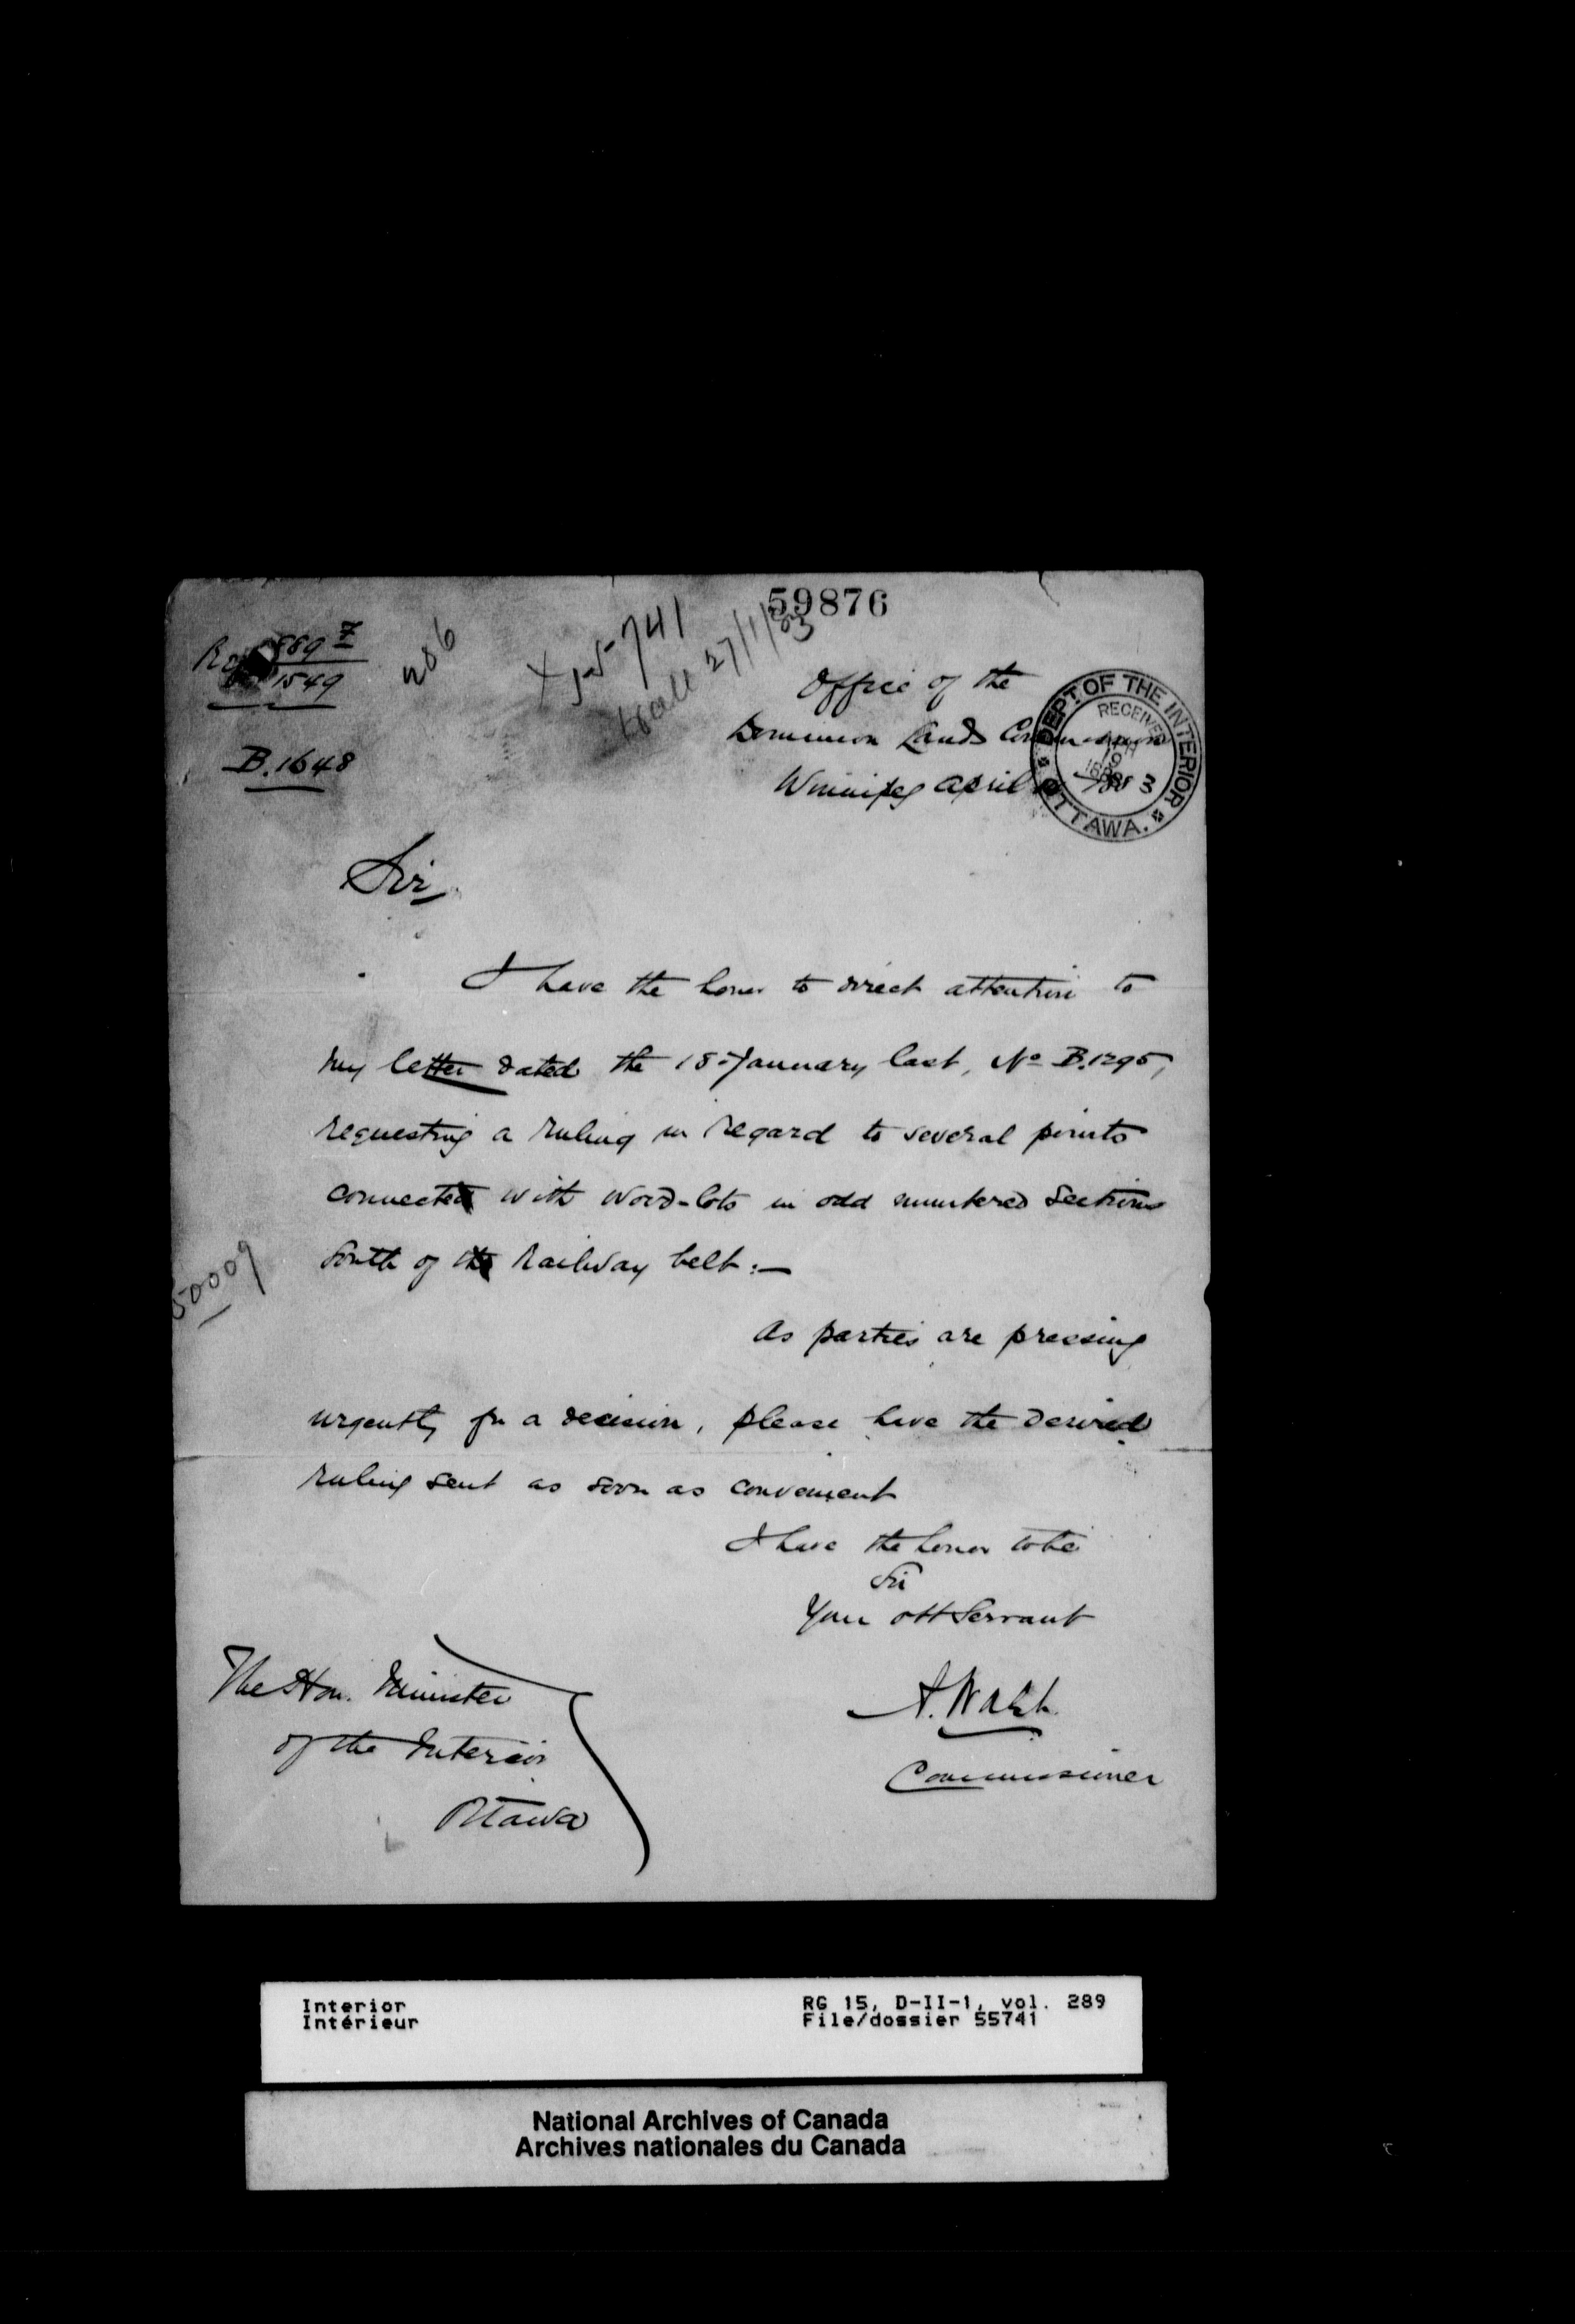 59876
889 Z
1549
286
X 55741
27/1/83
B. 1648
Office of the
Dominion Lands Commission
Winnipeg April 1883
DEPT. OF THE INTERIOR
RECEIVED
OTTAWA.
Sir,
I have the honor to direct attention to
my letter dated the 18 January last, No B.1295,
requesting a ruling in regard to several points
connected with wood-lots in odd numbered Sections
South of the Railway belt:—
50009
As parties are pressing
urgently for a decision, please have the desired
ruling sent as soon as convenient
I have the honor to be
Sir
Your obt Servant
A. Walsh
Commissioner
The Hon. Minister
of the Interior
Ottawa
Interior
Intérieur
RG 15, D-II-1, vol. 289
File/dossier 55741
National Archives of Canada
Archives nationales du Canada